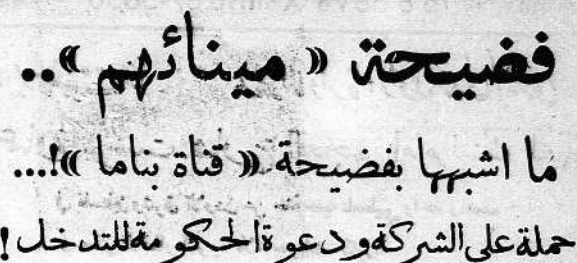 فضيحة « مينائهم »..
ما اشبهها بفضيحة « قناة بناما »!...
حملة على الشركة ودعوة الحكومة للتدخل !